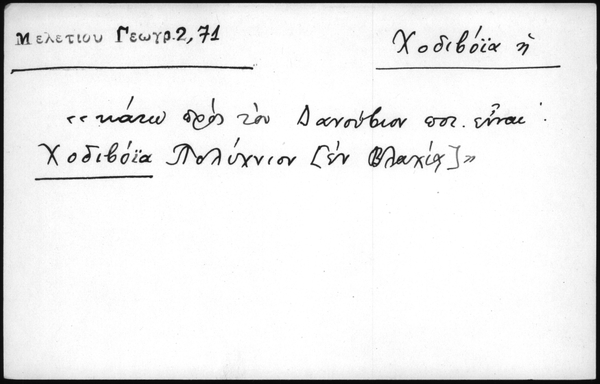 Μελετίου Γεωγρ. 2,71
Χοδιβόϊα ἡ
«κάτω πρὸς τὸν Δανούβιον ποτ. εἶναι·
Χοδιβόϊα Πολύχνιον [ἐν Βλαχίᾳ]»